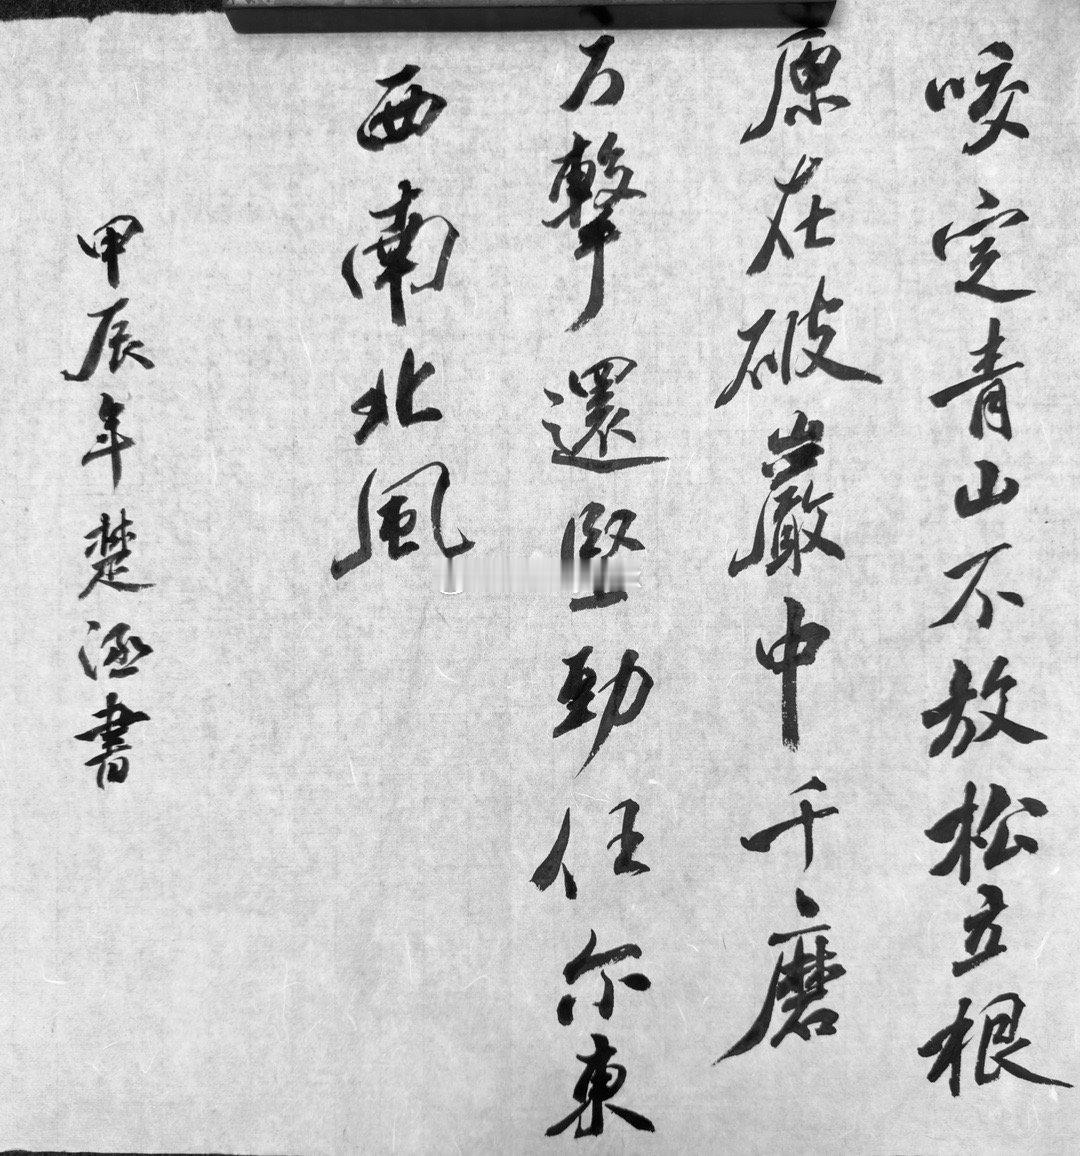 咬定青山不放松立根
原在破巖中千磨
万擊還堅勁任尔東
西南北風
甲辰年楚涵書